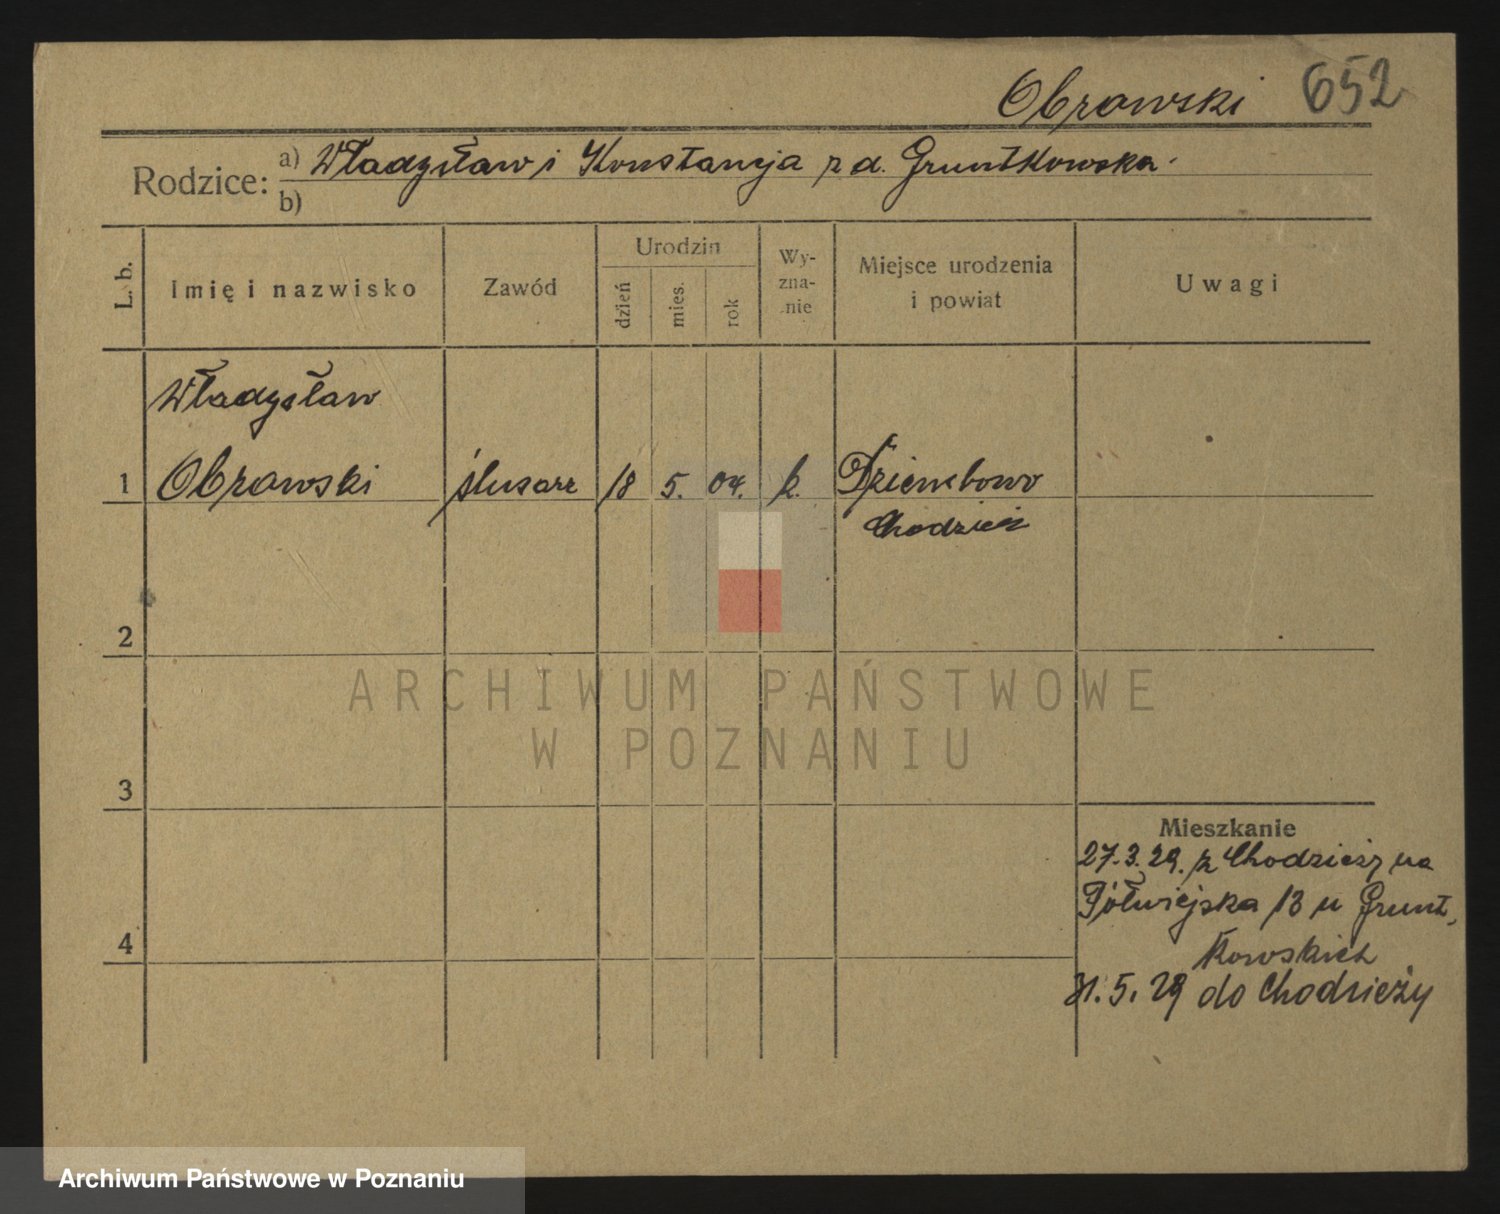 Obrowski 652
Rodzice: a) Władysław i Konstancja z d. Gruntkowska.
b)
L. b.
Imię i nazwisko
Zawód
Urodzin
dzień
mies.
rok
Wy-
zna-
nie
Miejsce urodzenia
i powiat
Uwagi
Władysław
1 Obrowski ślusarz 18 5. 04. k.
Chodzież
2
ARCHIWUM PAŃSTWOWE
W POZNANIU
3
Mieszkanie
27.3.29. z Chodzieży na
Półwiejska 13 u Grunt,
kowskich
31.5.29 do Chodzieży
4
Archiwum Państwowe w Poznaniu